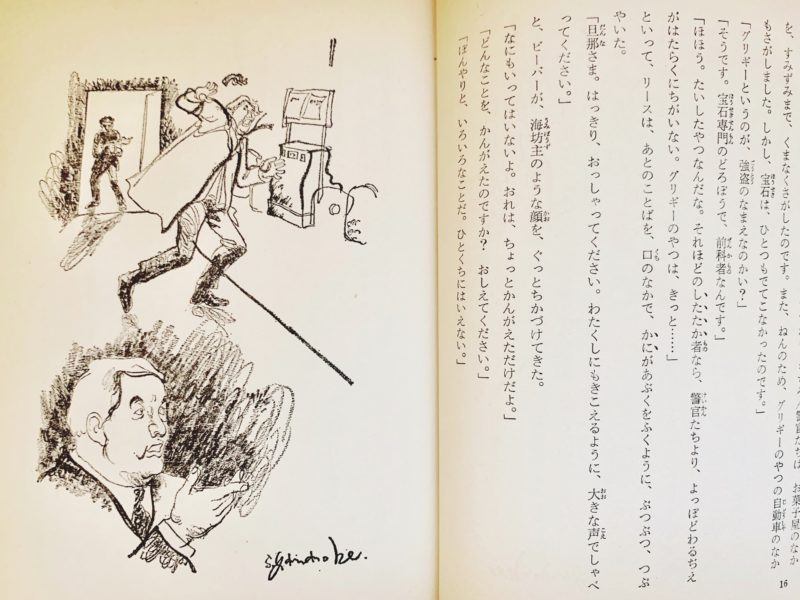 を、すみずみまで、くまなくさがしたのです。また、ねんのため、グリギーのやつの自動車のなか
もさがしました。しかし、宝石は、ひとつもでてこなかったのです。」
「グリギーというのが、強盗のなまえなのかい？」
「そうです。宝石専門のどろぼうで、前科者なんです。」
「ほほう。たいしたやつなんだな。それほどのしたたか者なら、警官たちより、よっぽどわるぢえ
がはたらくにちがいない。グリギーのやつは、きっと……」
といって、リースは、あとのことばを、口のなかで、かにがあぶくをふくように、ぶつぶつ、つぶ
やいた。
「旦那さま。はっきり、おっしゃってください。わたくしにもきこえるように、大きな声でしゃべ
ってください。」
と、ビーパーが、海坊主のような顔を、ぐっとちかづけてきた。
「なにもいってはいないよ。おれは、ちょっとかんがえただけだよ。」
「どんなことを、かんがえたのですか？　おしえてください。」
「ぼんやりと、いろいろなことだ。ひとくちにはいえない。」
16